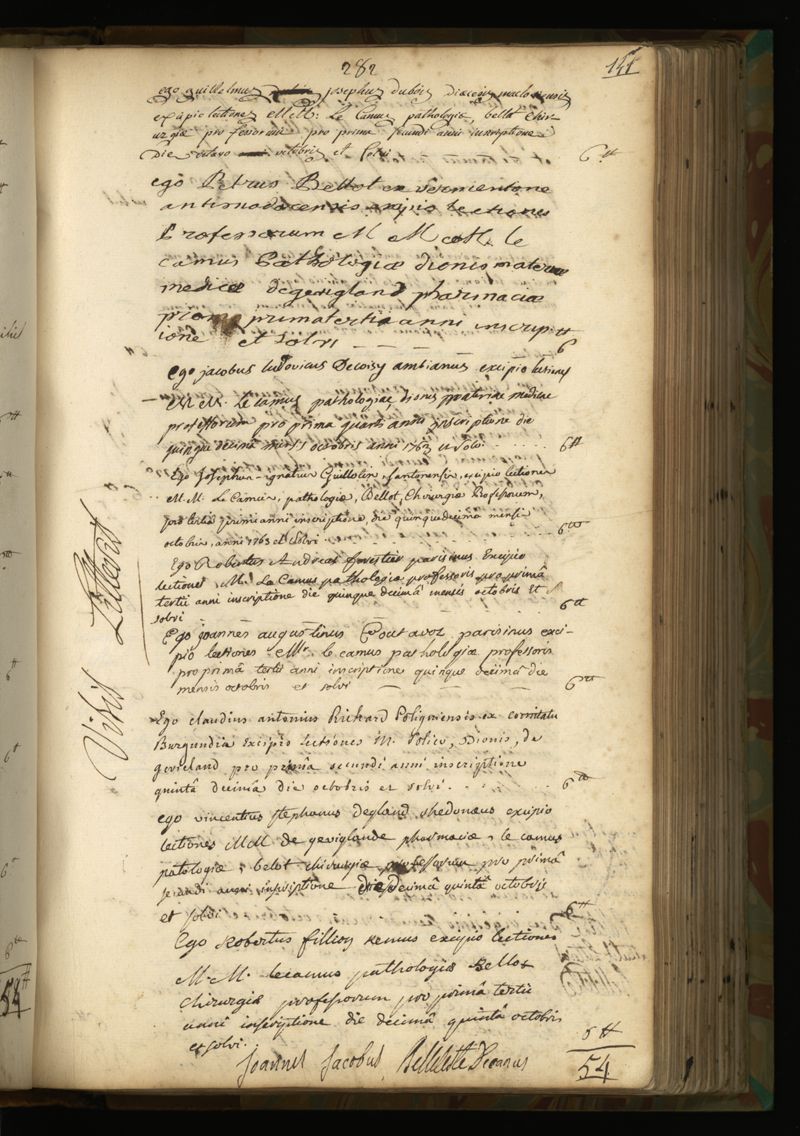 282
141
ego guillelmus josephus dubois diœcesis macloviensis
excipio lectiones MM. Le Camus pathologiæ, bellot chir-
urgiæ professorum pro prima secundi anni inscriptione
die octavo octobris et solvi 6tt
ego Petrus Bellot ex Vermentone
antissiodorensis excipio lectiones
Professorum M M. le
camus Pathologiæ dionis materiæ
medicæ degevigland pharmaciæ
prima tertii anni inscript
ione et solvi 6tt
Ego jacobus ludovicus Decoisy ambianus excipio lectiones
M M. Le camus pathologiæ, dionis materiæ medicæ
professorum pro prima quarti anni inscriptione die
quinque decimâ mensis octobris anni 1763 et solvi 6tt
Ego Josephus-ignatius Guillotin, santonensis, excipio lectiones
M.M. Le Camus, pathologiæ, Bellot, Chirurgiæ Professorum,
pro tertiâ primi anni inscriptione, die quinquedecima mensis
octobris, anni 1763 et solvi 6tt
Ego Robertus Andreas forestier parisinus Excipio
lectiones M. Le Camus pathologiæ professoris pro primâ
tertii anni inscriptione die quinque decimâ mensis octobris et
solvi 6tt
Ego joannes augustinus Coutavoz, parisinus exci-
pio lectiones Mri. le camus pathologiæ professoris
pro primâ tertii anni inscriptione quinque decimâ die
mensis octobris et solvi 6tt
Ego claudius antonius Richard Poligniensis ex comitatu
Burgundiæ Excipio lectiones M. Dionis, de
gevigland pro primâ secundi anni inscriptione
quintâ decimâ die octobris et solvi 6tt
ego vincentius stephanus degland rhedonæus excipio
lectiones MM de geviglande pharmaciæ, le camus
patologiæ, belot chirurgiæ professorum pro primâ
secundi anni inscriptione die decimâ quintâ octobris
et solvi 6tt
Ego Robertus fillion excipio lectiones
M.M. lecamus pathologiæ Bellot
chirurgiæ professorum pro primâ tertii
anni inscriptione die decimâ quintâ octobris
et solvi. 6tt
54
Joannes Jacobus Belleteste Decanus